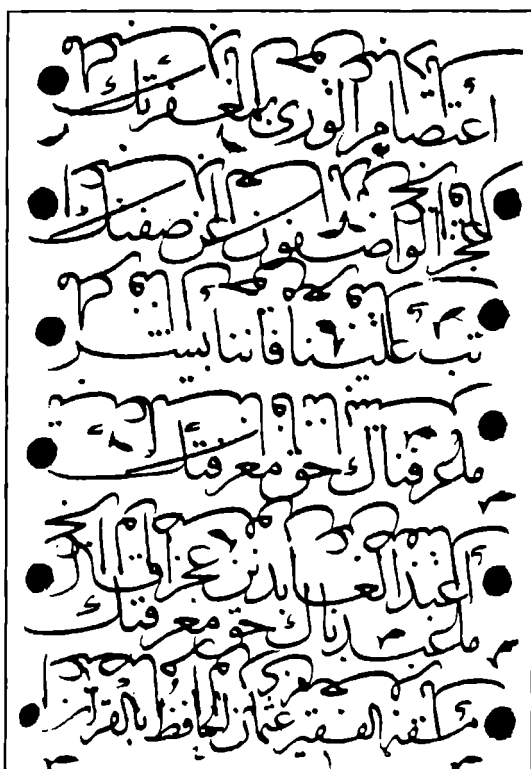 اعتصام الورى بمغفرتك
عجز الواصفون عن صفتك
تب علينا فاننا بشر
ما عرفناك حق معرفتك
أعبد العابدين عجزا قال
ما عبدناك حق معرفتك
مشقه الفقير عثمان الحافظ بالقران